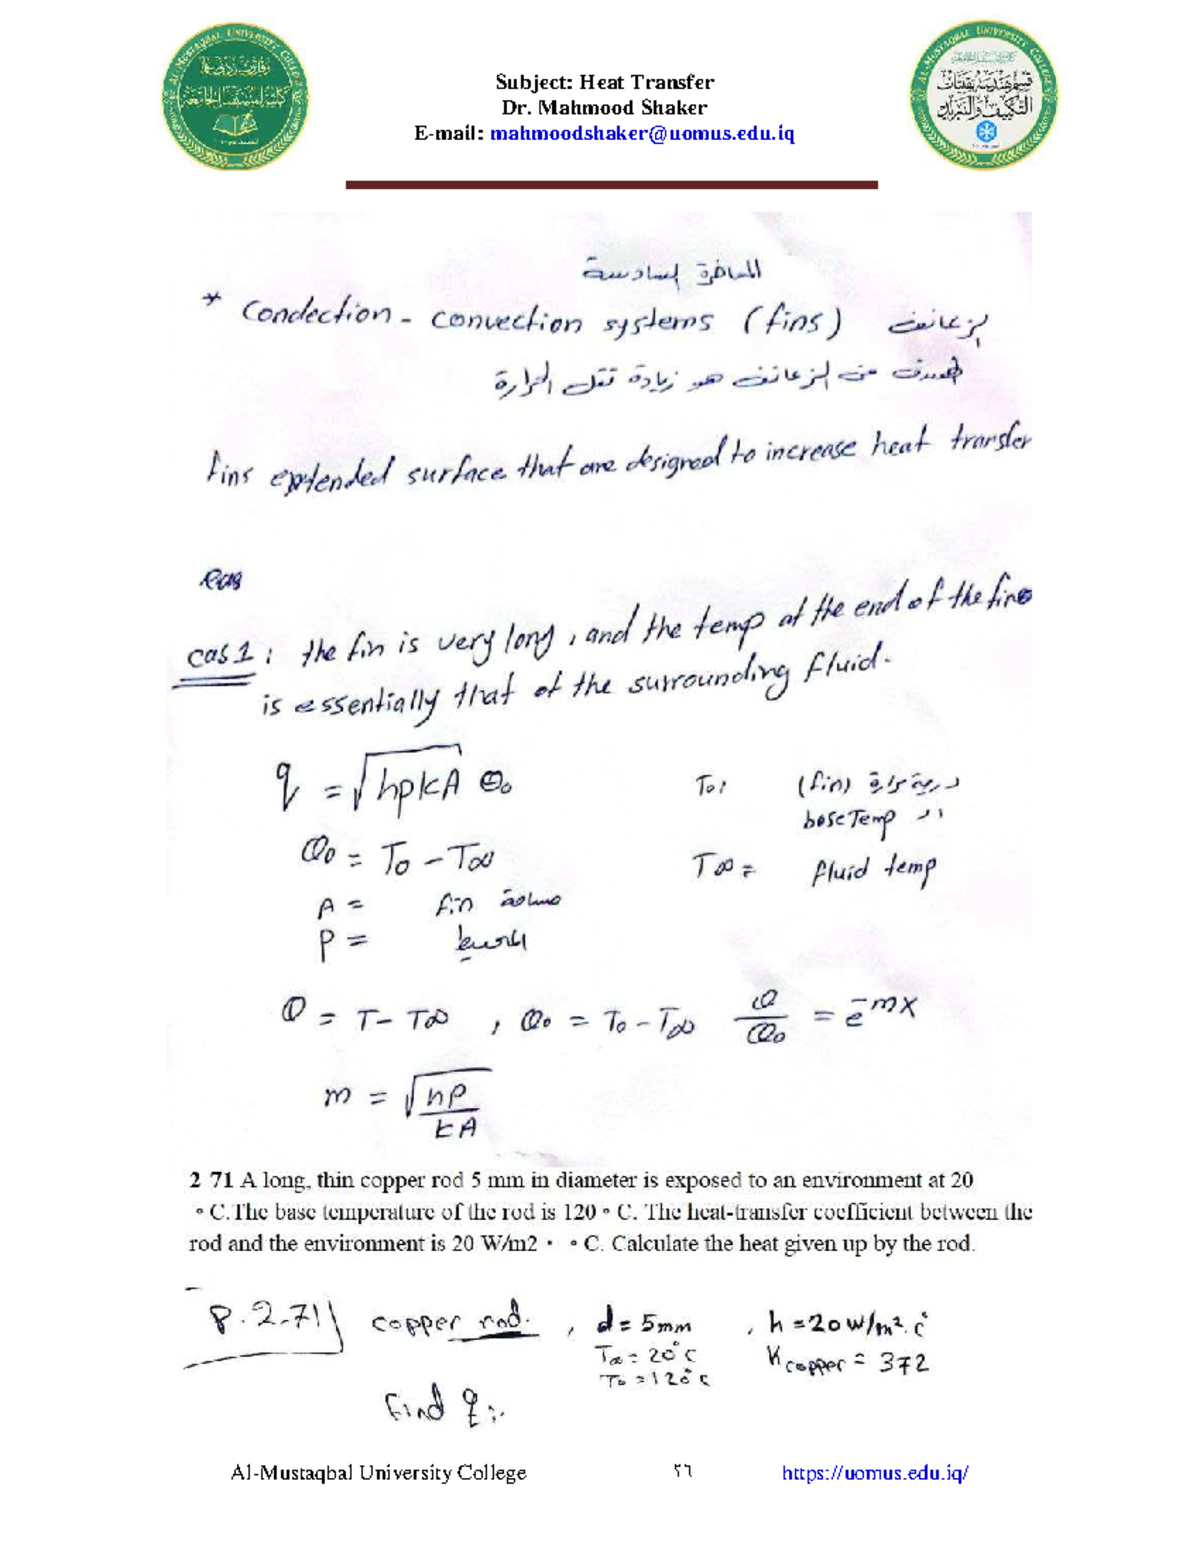 Subject: Heat Transfer
Dr. Mahmood Shaker
E-mail: mahmoodshaker@uomus.edu.iq
AL-MUSTAQBAL UNIVERSITY COLLEGE
كلية المستقبل الجامعة
AL-MUSTAQBAL UNIVERSITY COLLEGE
قسم هندسة تقنيات
التكييف والتبريد
المحاضرة السادسة
* Condection - convection systems (fins) الزعانف
الهدف من الزعانف هو زيادة نقل الحرارة
fins extended surface that are designed to increase heat transfer
cas 1: the fin is very long, and the temp at the end of the fin
is essentially that of the surrounding fluid.
q = √hpkA θo
To: (fin) درجة حرارة
base Temp ال
θo = To - T∞
T∞ = fluid temp
A = مساحة fin
P = المحيط
θ = T - T∞ , θo = To - T∞ θ/θo = e^-mx
m = √hP/kA
2 71 A long, thin copper rod 5 mm in diameter is exposed to an environment at 20
∘ C.The base temperature of the rod is 120 ∘ C. The heat-transfer coefficient between the
rod and the environment is 20 W/m2 · ∘ C. Calculate the heat given up by the rod.
P. 2-71 copper rod. , d = 5mm , h = 20 W/m².c°
T∞ = 20°C Kcopper = 372
To = 120°C
find q:.
Al-Mustaqbal University College ٢٦ https://uomus.edu.iq/